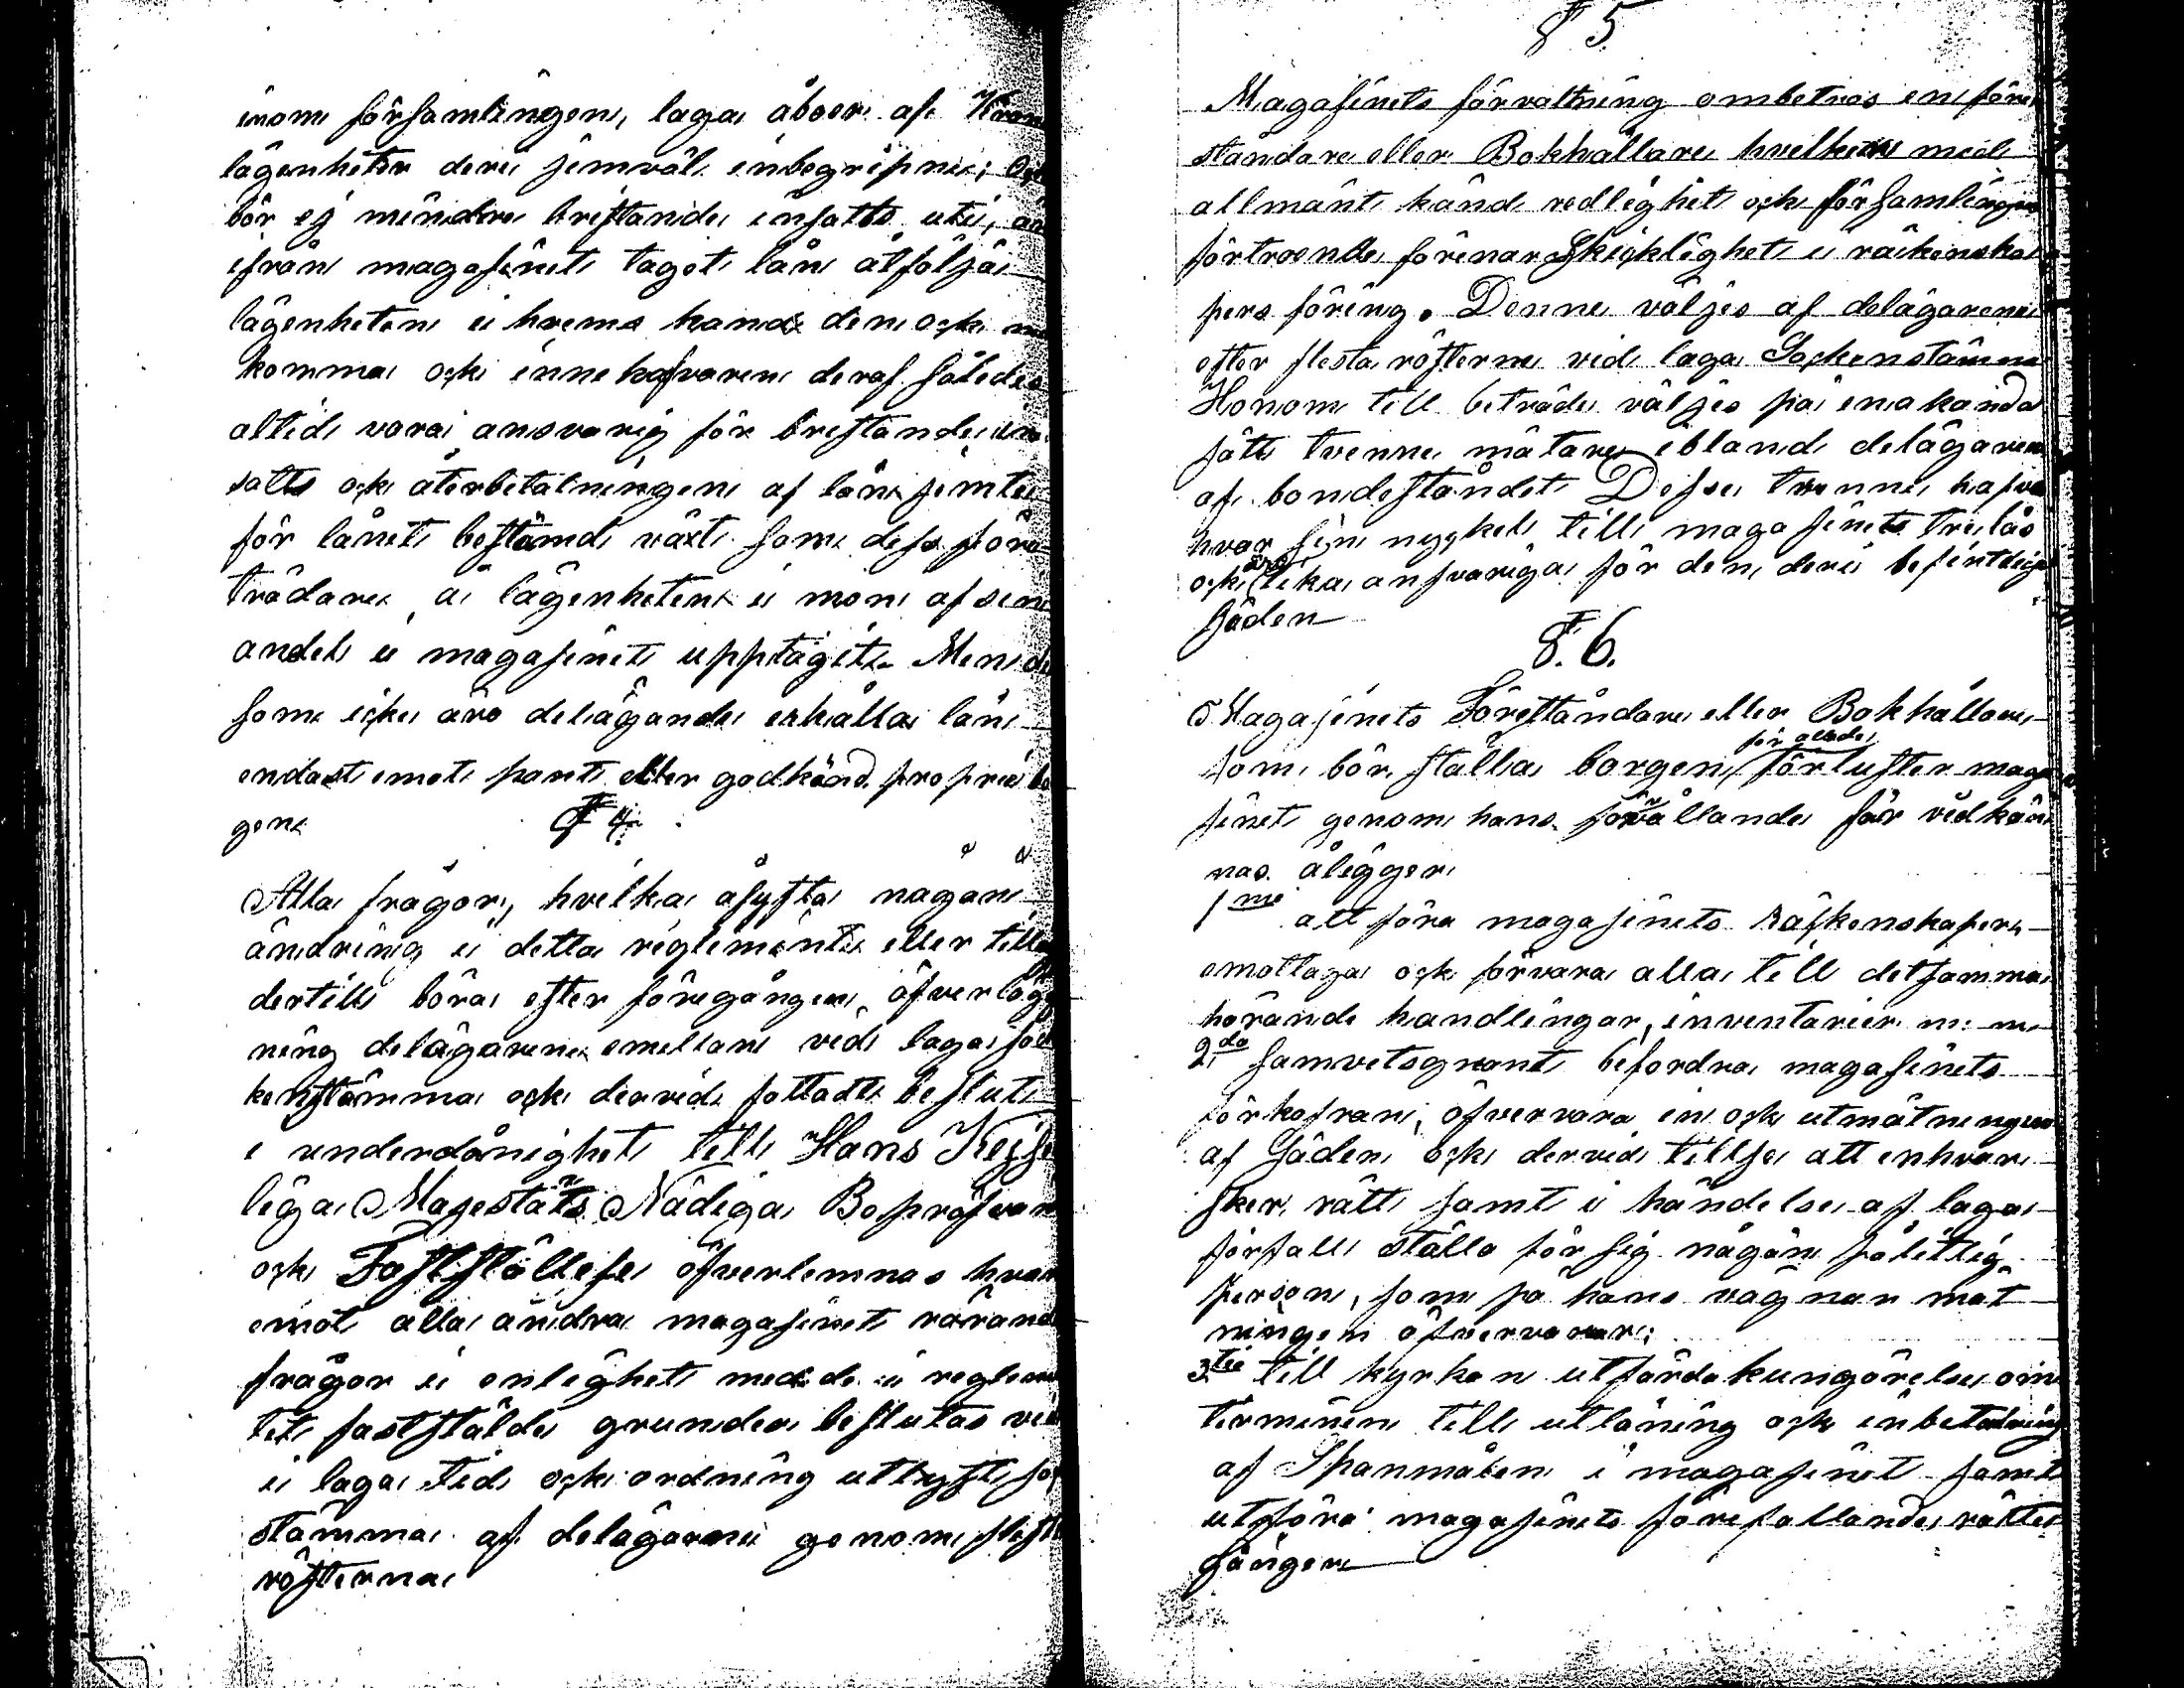 inom församlingen, laga åboer af Kron
lägenheter deri jemväl inbegripne; Och
bör ej mindre bristande insatts uti, än
ifrån magasinet taget lån åtfölja
lägenheten i hvems hand den ock må
komma och innehafvaren deraf således
altid vara ansvarig för bristande in
satts och återbetalningen af lån jemte
för lånet bestämd växt som dess före
trädare å lägenheten i mon af sin
andel i magasinet upptagit. Men de
som icke äro delägande erhålla lån
endast emot pant eller godkänd proprie bor
gen.
§ 4.
Alla frågor, hvilka åsyfta någon
ändring i detta reglemente eller tillägg
dertill böra efter föregången öfverlägg
ning delägarene emellan vid laga soc
kenstämma och dervid fattadt beslut
i underdånighet till Hans Kejser
liga Majestäts Nådiga Bepröfvan
och Fastställelse öfverlemnas hvar
emot alla andra magasinet rörande
frågor i enlighet med de i reglemen
tet fastställde grunder beslutas vid
i laga tid och ordning utlyst soc
stämma af delägarne genom flesta
rösterna
§ 5
Magasinets förvaltning ombetros en före
ståndare eller Bokhållare hvilken med
allmänt känd redlighet och församlingens
förtroende förenar Skicklighet i räkenska
pers föring. Denne väljes af delägarene
efter flesta rösterne vid laga Sockenstämma
Honom till beträde väljes på enahanda
sätt tvenne mätare ibland delägarene
af bondeståndet Desse trenne hafva
hvar sin nyckel till magasinets tre lås
och äro lika ansvariga för den deri befintliga
Säden
§. 6.
Magasinets Föreståndare eller Bokhållare
som bör ställa borgen för allade förluster maga
sinet genom hans förvållande får vidkän
nas. åligger
1 mo att föra magasinets räkenskaper
emottaga och förvara alla till detsamma
hörande handlingar, inventarier m. m.
2 do Samvetsgrant befordra magasinets
förkofran, öfvervara in och utmätningen
af Säden och dervid tillse att enhvar
sker rätt samt i händelse af laga
förfall ställa för sig någon pålitlig
person, som på hans vägnar mät
ningen öfvervarar;
3. tio till kyrkan utfärda kungörelse om
terminen till utlåning och inbetalning
af Spanmålen i magasinet samt
utföra magasinets förefallande rätte
gångar